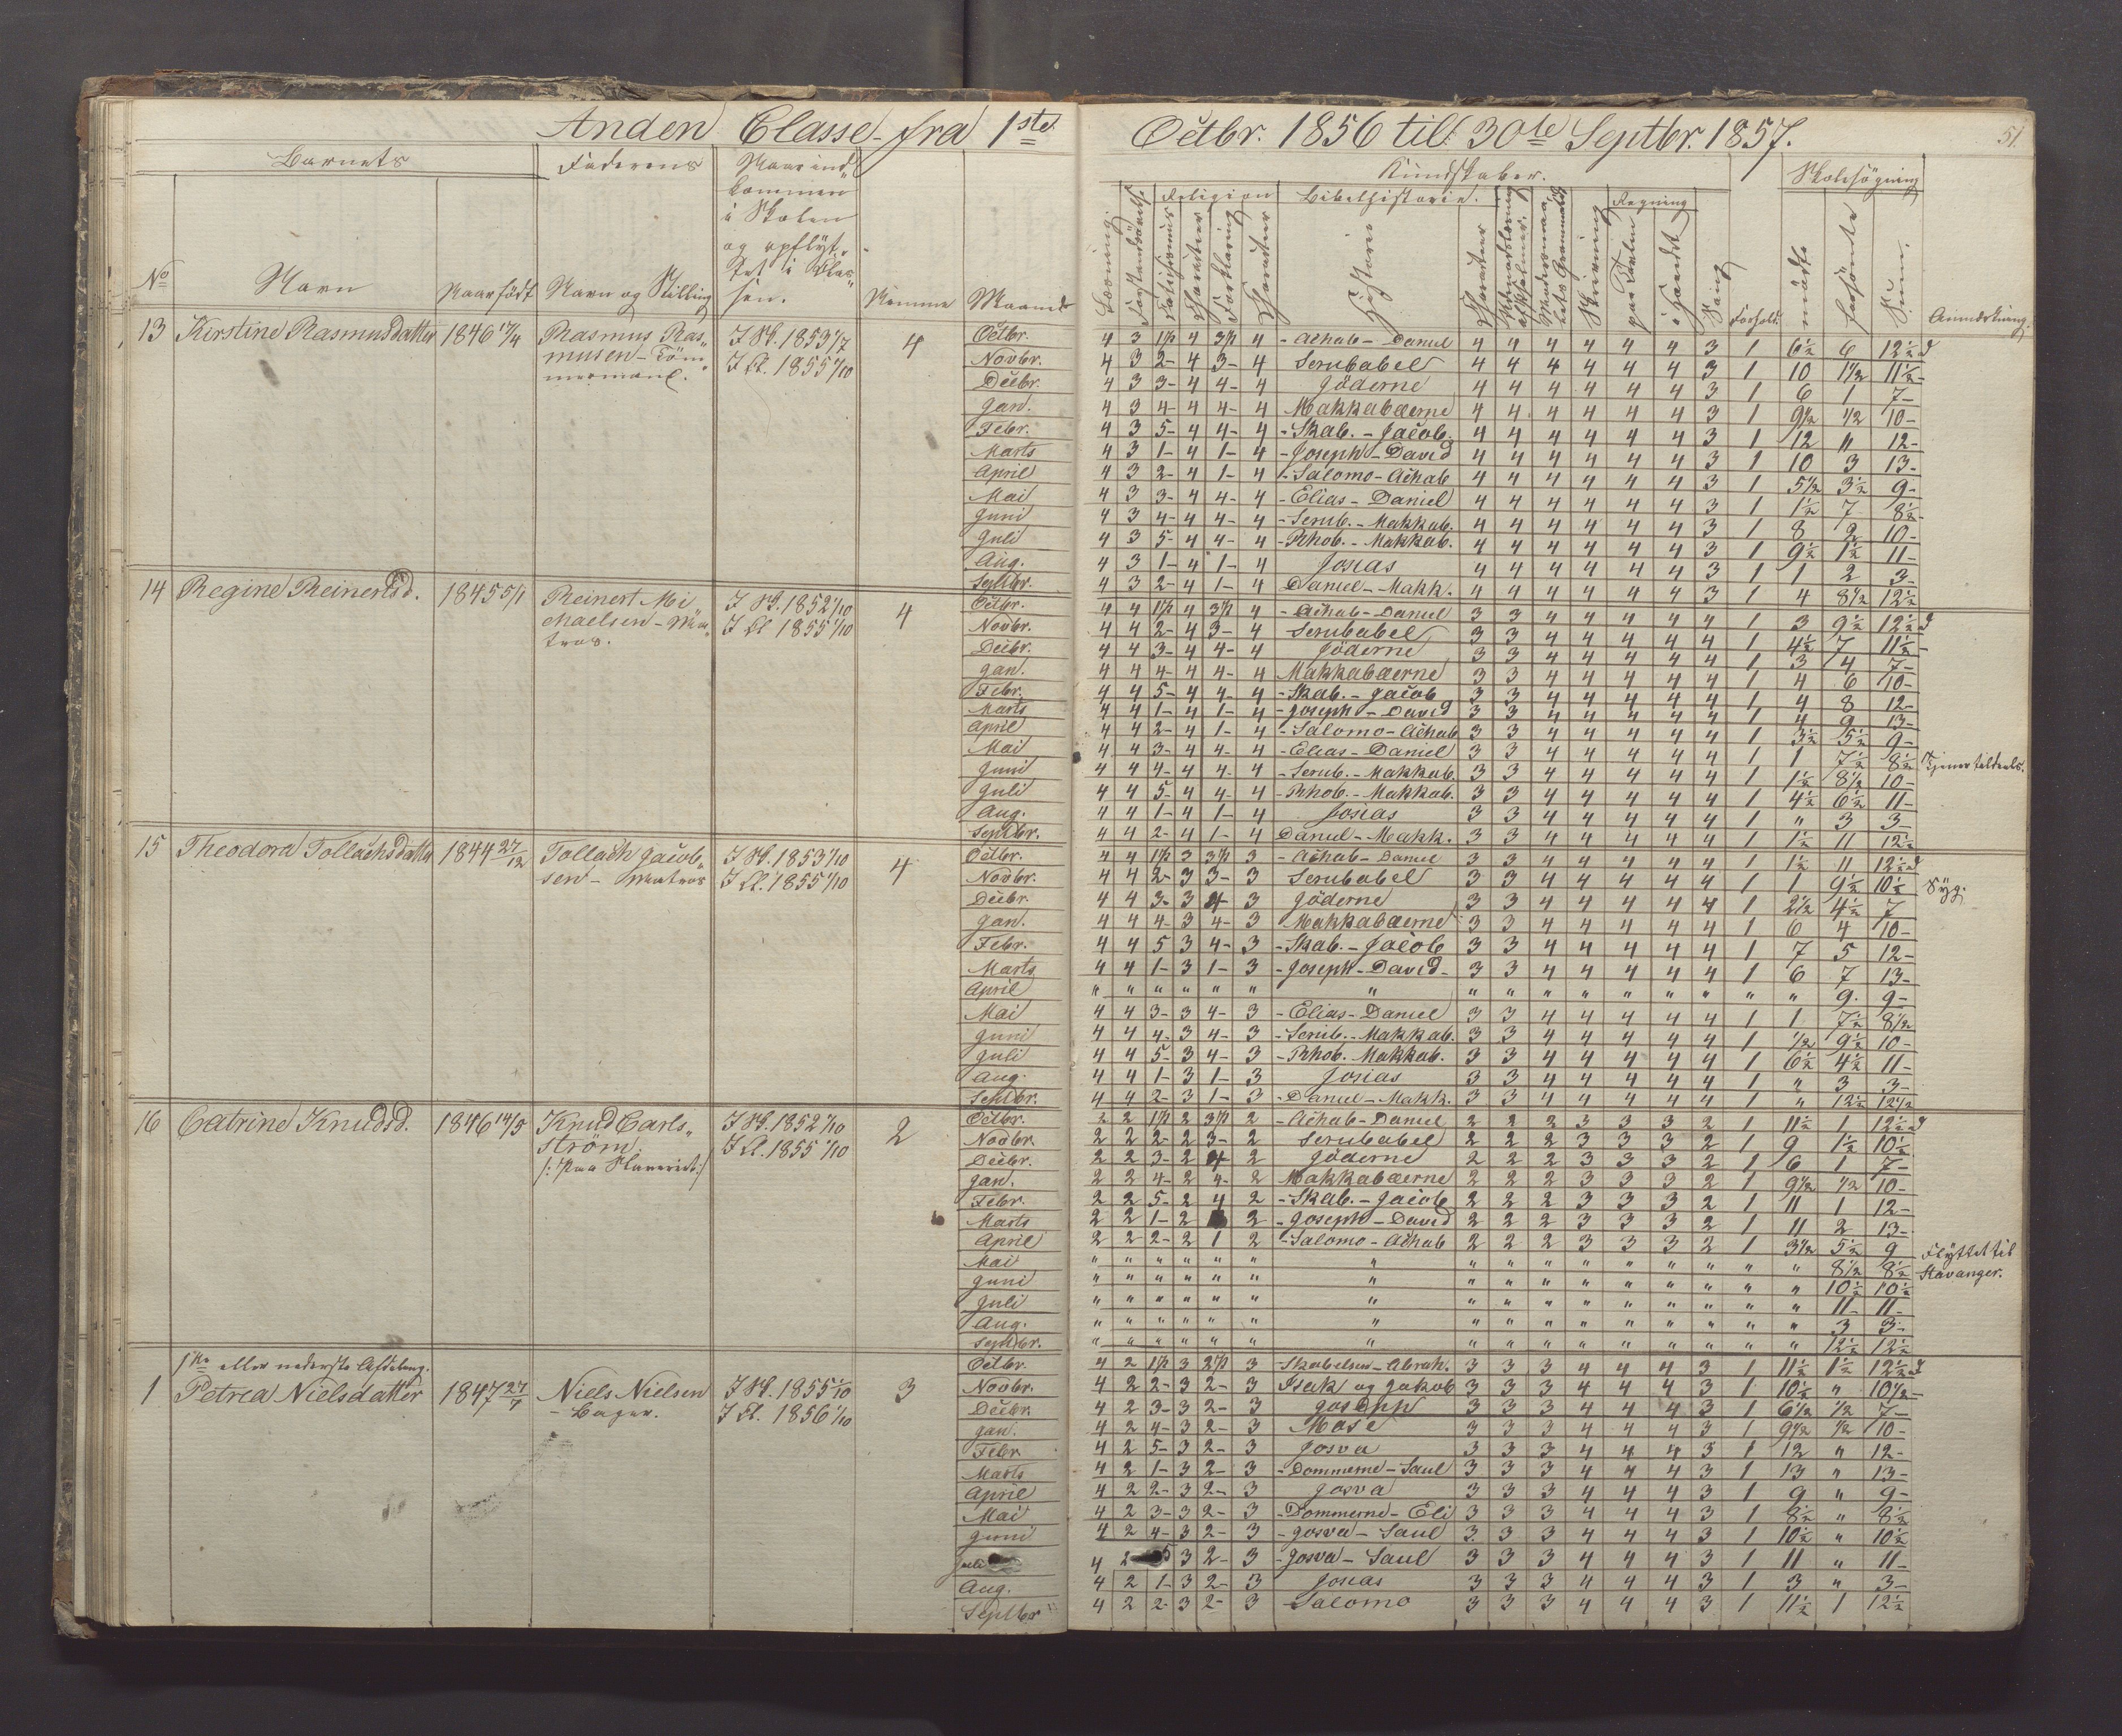 Anden Classe fra 1ste Octbr. 1856 til 30te Septbr. 1857.
51.
Barnets Faderens Naar ind-
kommen
i Skolen
og opflyt-
tet i Clas-
sen.
No Navn Naar født Navn og Stilling Nemme Maaned
Kundskaber. Skolesøgning
Religion Bibelhistorie. Regning
Læsning Forklaring Charakter Historie Charakter Skrivning paa Tavlen i Hovedet Sang Forhold. mødte forsømte Sum. Anmærkning.
13 Kirstine Rasmusdatter 1846 17/4 Rasmus Ras-
musen - Töm-
mermand.
I Sk. 1853 1/7
I Cl. 1855 1/10
4
Octbr. 4 3 1ste 4 3die 4 - Achab - Daniel 4 4 4 4 4 4 3 1 6½ 6 12½ d
Novbr. 4 3 2- 4 3- 4 Serubabel 4 4 4 4 4 4 3 1 10 1½ 11½-
Decbr. 4 3 3- 4 4- 4 Jöderne 4 4 4 4 4 4 3 1 6 1 7-
Jan. 4 3 4- 4 4- 4 Makkabæerne 4 4 4 4 4 4 3 1 9½ ½ 10-
Febr. 4 3 5- 4 4- 4 - Skab. - Jacob. 4 4 4 4 4 4 3 1 12 " 12-
Marts 4 3 1- 4 1- 4 - Joseph - David 4 4 4 4 4 4 3 1 10 3 13-
April 4 3 2- 4 1- 4 - Salomo - Achab 4 4 4 4 4 4 3 1 5½ 3½ 9-
Mai 4 3 3- 4 4- 4 - Elias - Daniel 4 4 4 4 4 4 3 1 1½ 7 8½-
Juni 4 3 4- 4 4- 4 - Serub. - Makkab. 4 4 4 4 4 4 3 1 8 2 10-
Juli 4 3 5- 4 4- 4 - Rhob. - Makkab. 4 4 4 4 4 4 3 1 9½ 1½ 11-
Aug. 4 3 1- 4 1- 4 Josias 4 4 4 4 4 4 3 1 1 2 3-
Septbr. 4 3 2- 4 1- 4 Daniel - Makk. 4 4 4 4 4 4 3 1 4 8½ 12½
14 Regine Reinertsd. 1845 5/1 Reinert Mi-
chaelsen - Ma-
tros.
I Sk. 1852 1/10
I Cl 1855 1/10
4
Octbr. 4 4 1ste 4 3die 4 - Achab - Daniel 3 3 4 4 4 4 4 1 3 9½ 12½ d
Novbr. 4 4 2- 4 3- 4 Serubabel 3 3 4 4 4 4 4 1 4½ 7 11½-
Decbr. 4 4 3- 4 4- 4 Jöderne 3 3 4 4 4 4 4 1 3 4 7-
Jan. 4 4 4- 4 4- 4 Makkabæerne 3 3 4 4 4 4 4 1 4 6 10-
Febr. 4 4 5- 4 4- 4 - Skab. - Jacob 3 3 4 4 4 4 4 1 4 8 12-
Marts 4 4 1- 4 1- 4 - Joseph - David 3 3 4 4 4 4 4 1 4 9 13-
April 4 4 2- 4 1- 4 - Salomo - Achab 3 3 4 4 4 4 4 1 3½ 5½ 9-
Mai 4 4 3- 4 4- 4 - Elias - Daniel 3 3 4 4 4 4 4 1 1 7½ 8½ Tjener tildeels.
Juni 4 4 4- 4 4- 4 - Serub. - Makkab. 3 3 4 4 4 4 4 1 1½ 8½ 10-
Juli 4 4 5- 4 4- 4 - Rhob. - Makkab. 3 3 4 4 4 4 4 1 4½ 6½ 11-
Aug. 4 4 1- 4 1- 4 Josias 3 3 4 4 4 4 4 1 " 3 3-
Septbr. 4 4 2- 4 1- 4 Daniel - Makk. 3 3 4 4 4 4 4 1 1½ 11 12½
15 Theodora Tollachsdatter 1844 27/12 Tollach Jacob-
sen - Matros
I Sk. 1853 1/10
I Cl. 1855 1/10
4
Octbr. 4 4 1ste 3 3die 3 - Achab - Daniel 3 3 4 4 4 4 4 1 1½ 11 12½ d
Novbr. 4 4 2- 3 3- 3 Serubabel 3 3 4 4 4 4 4 1 1 9½ 10½ Syg.
Decbr. 4 4 3- 3 4 3 Jöderne 3 3 4 4 4 4 4 1 2½ 4½ 7
Jan. 4 4 4- 3 4- 3 Makkabæerne 3 3 4 4 4 4 4 1 6 4 10-
Febr. 4 4 5 3 4- 3 - Skab. - Jacob 3 3 4 4 4 4 4 1 7 5 12-
Marts 4 4 1- 3 1- 3 - Joseph - David - 3 3 4 4 4 4 4 1 6 7 13-
April " " " " " " " " " " " " " " " " 9. 9-
Mai 4 4 3- 3 4- 3 - Elias - Daniel 3 3 4 4 4 4 4 1 1 7½ 8½
Juni 4 4 4- 3 4- 3 - Serub. - Makkab. 3 3 4 4 4 4 4 1 ½ 9½ 10-
Juli 4 4 5- 3 4- 3 - Rhob. Makkab. 3 3 4 4 4 4 4 1 6½ 4½ 11-
Aug. 4 4 1- 3 1- 3 Josias 3 3 4 4 4 4 4 1 " 3 3-
Septbr. 4 4 2- 3 1- 3 - Daniel - Makk. 3 3 4 4 4 4 4 1 " 12½ 12½
16 Catrine Knudsd. 1846 14/5 Knud Carls-
ström.
I Sk. 1852 1/10
I Cl. 1855 1/10
2
Octbr. 2 2 1ste 2 3die 2 - Achab - Daniel 2 2 2 3 3 3 2 1 11½ 1 12½ d
Novbr. 2 2 2- 2 3- 2 Serubabel 2 2 2 3 3 3 2 1 9 1½ 10½
Decbr. 2 2 3- 2 4 2 Jöderne 2 2 2 3 3 3 2 1 6 1 7-
Jan. 2 2 4- 2 4- 2 Makkabæerne 2 2 2 3 3 3 2 1 9½ ½ 10-
Febr. 2 2 5- 2 4 2 - Skab. - Jacob 2 2 2 3 3 3 2 1 11 1 12-
Marts 2 2 1- 2 2 - Joseph - David 2 2 2 3 3 3 2 1 11 2 13-
April 2 2 2- 2 1 2 - Salomo - Achab 2 2 2 3 3 3 2 1 3½ 5½ 9 Flyttet til
Mai " " " " " " " " " " " " " " " " 8½ 8½ Stavanger.
Juni " " " " " " " " " " " " " " " " 10½ 10½
Juli " " " " " " " " " " " " " " " " 11- 11-
Aug. " " " " " " " " " " " " " " " " 3 3-
Septbr. " " " " " " " " " " " " " " " " 12½ 12½
1ste eller nederste Afdeling.
1 Petrea Nielsdatter 1847 27/7 Niels Nielsen
- Bager.
I Sk. 1855 1/10
I Cl. 1856 1/10
3
Octbr. 4 2 1ste 3 2den 3 - Skabelsen - Abrah. 3 3 3 4 4 4 3 1 11½ 1½ 12½ d
Novbr. 4 2 2- 3 2- 3 Isak og Jakob 3 3 3 4 4 4 3 1 10½ " 10½-
Decbr. 4 2 3- 3 2- 3 Joseph 3 3 3 4 4 4 3 1 6½ ½ 7-
Jan. 4 2 4- 3 2- 3 Mose 3 3 3 4 4 4 3 1 9½ ½ 10-
Febr. 4 2 5- 3 2- 3 Josva 3 3 3 4 4 4 3 1 12 " 12-
Marts 4 2 1- 3 2- 3 - Dommerne - Saul 3 3 3 4 4 4 3 1 13 " 13-
April 4 2 2- 3 2- 3 Josva 3 3 3 4 4 4 3 1 9 " 9-
Mai 4 2 3- 3 2- 3 - Dommerne - Eli 3 3 3 4 4 4 3 1 8½ " 8½
Juni 4 2 4- 3 2- 3 - Josva - Saul 3 3 3 4 4 4 3 1 10½ " 10½
Juli 4 2 5 3 2- 3 - Josva - Saul 3 3 3 4 4 4 3 1 11 " 11-
Aug. 4 2 1- 3 2- 3 Josias 3 3 3 4 4 4 3 1 3 " 3-
Septbr 4 2 2- 3 2- 3 Salomo 3 3 3 4 4 4 3 1 11½ 1 12½